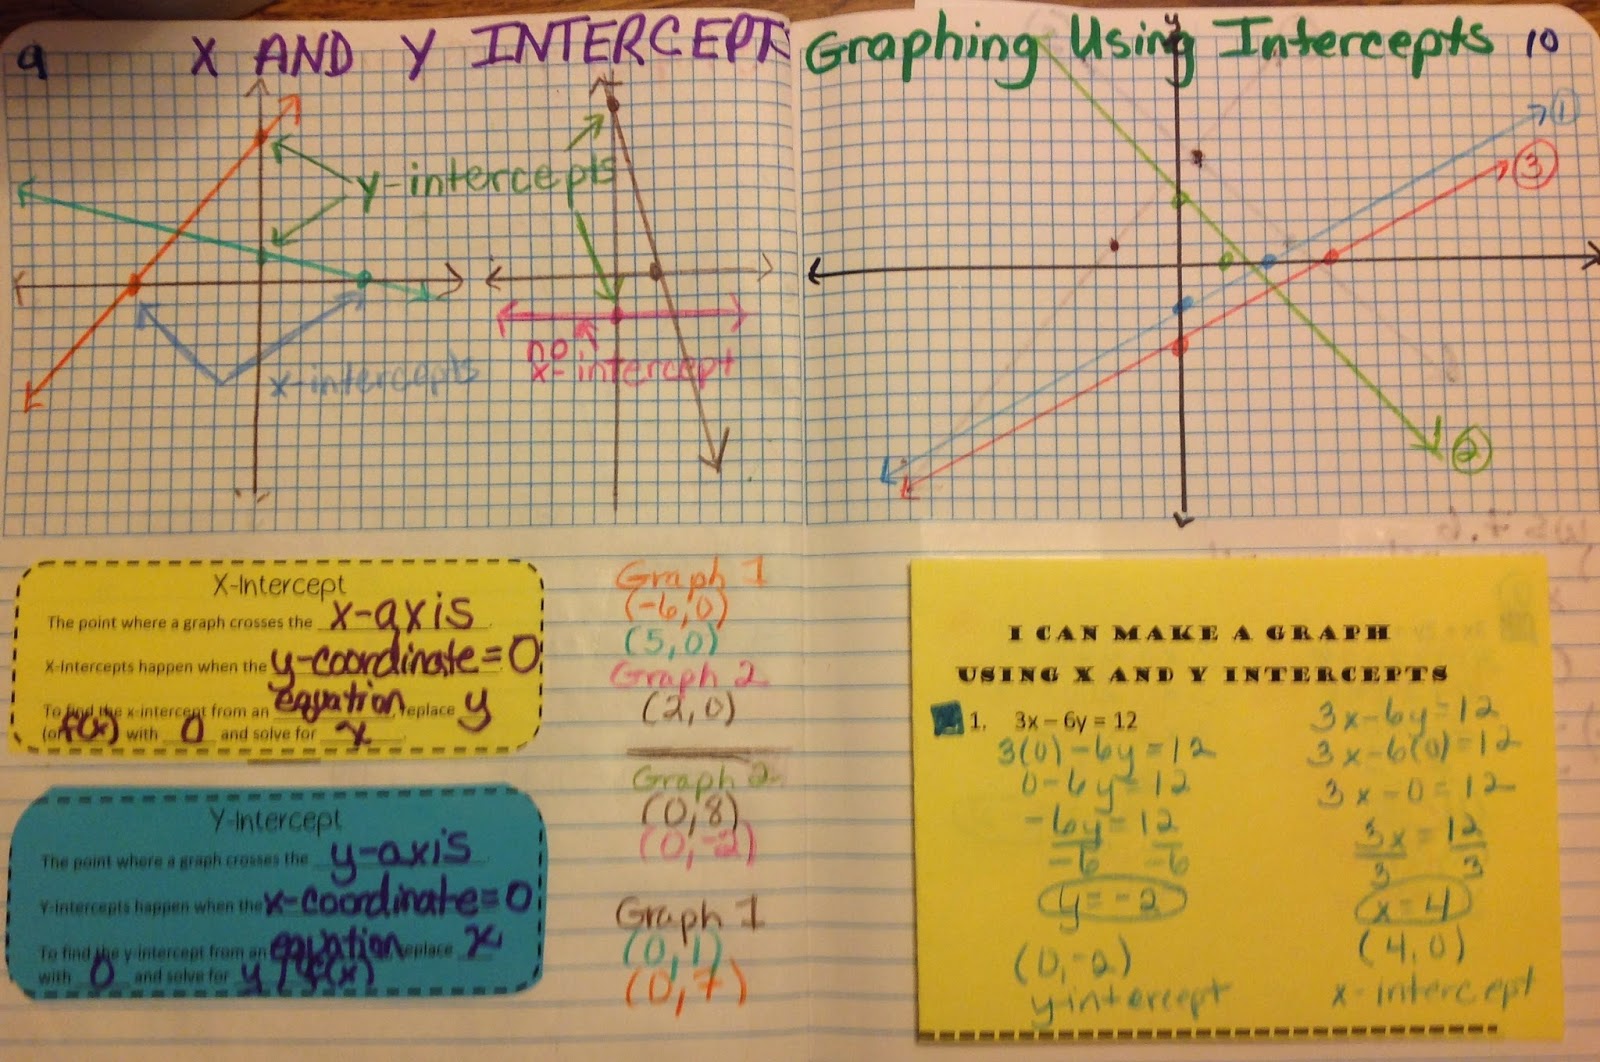 9
X AND Y INTERCEPTS
y-intercepts
x-intercepts
no
x-intercept
X-Intercept
The point where a graph crosses the x-axis.
X-Intercepts happen when the y-coordinate=0.
To find the x-intercept from an equation replace y
(or f(x)) with 0 and solve for x.
Y-Intercept
The point where a graph crosses the y-axis.
Y-Intercepts happen when the x-coordinate=0
To find the y-intercept from an equation replace x
with 0 and solve for y / f(x)
Graph 1
(-6,0)
(5,0)
Graph 2
(2,0)
Graph 2
(0,8)
(0,-2)
Graph 1
(0,1)
(0,7)
Graphing Using Intercepts 10
y
1
3
2
I CAN MAKE A GRAPH
USING X AND Y INTERCEPTS
1. 3x – 6y = 12
3(0) - 6y = 12
0 - 6y = 12
-6y = 12
-6 -6
y = -2
(0,-2)
y-intercept
3x - 6y = 12
3x - 6(0) = 12
3x - 0 = 12
3x = 12
3 3
x = 4
(4,0)
x-intercept